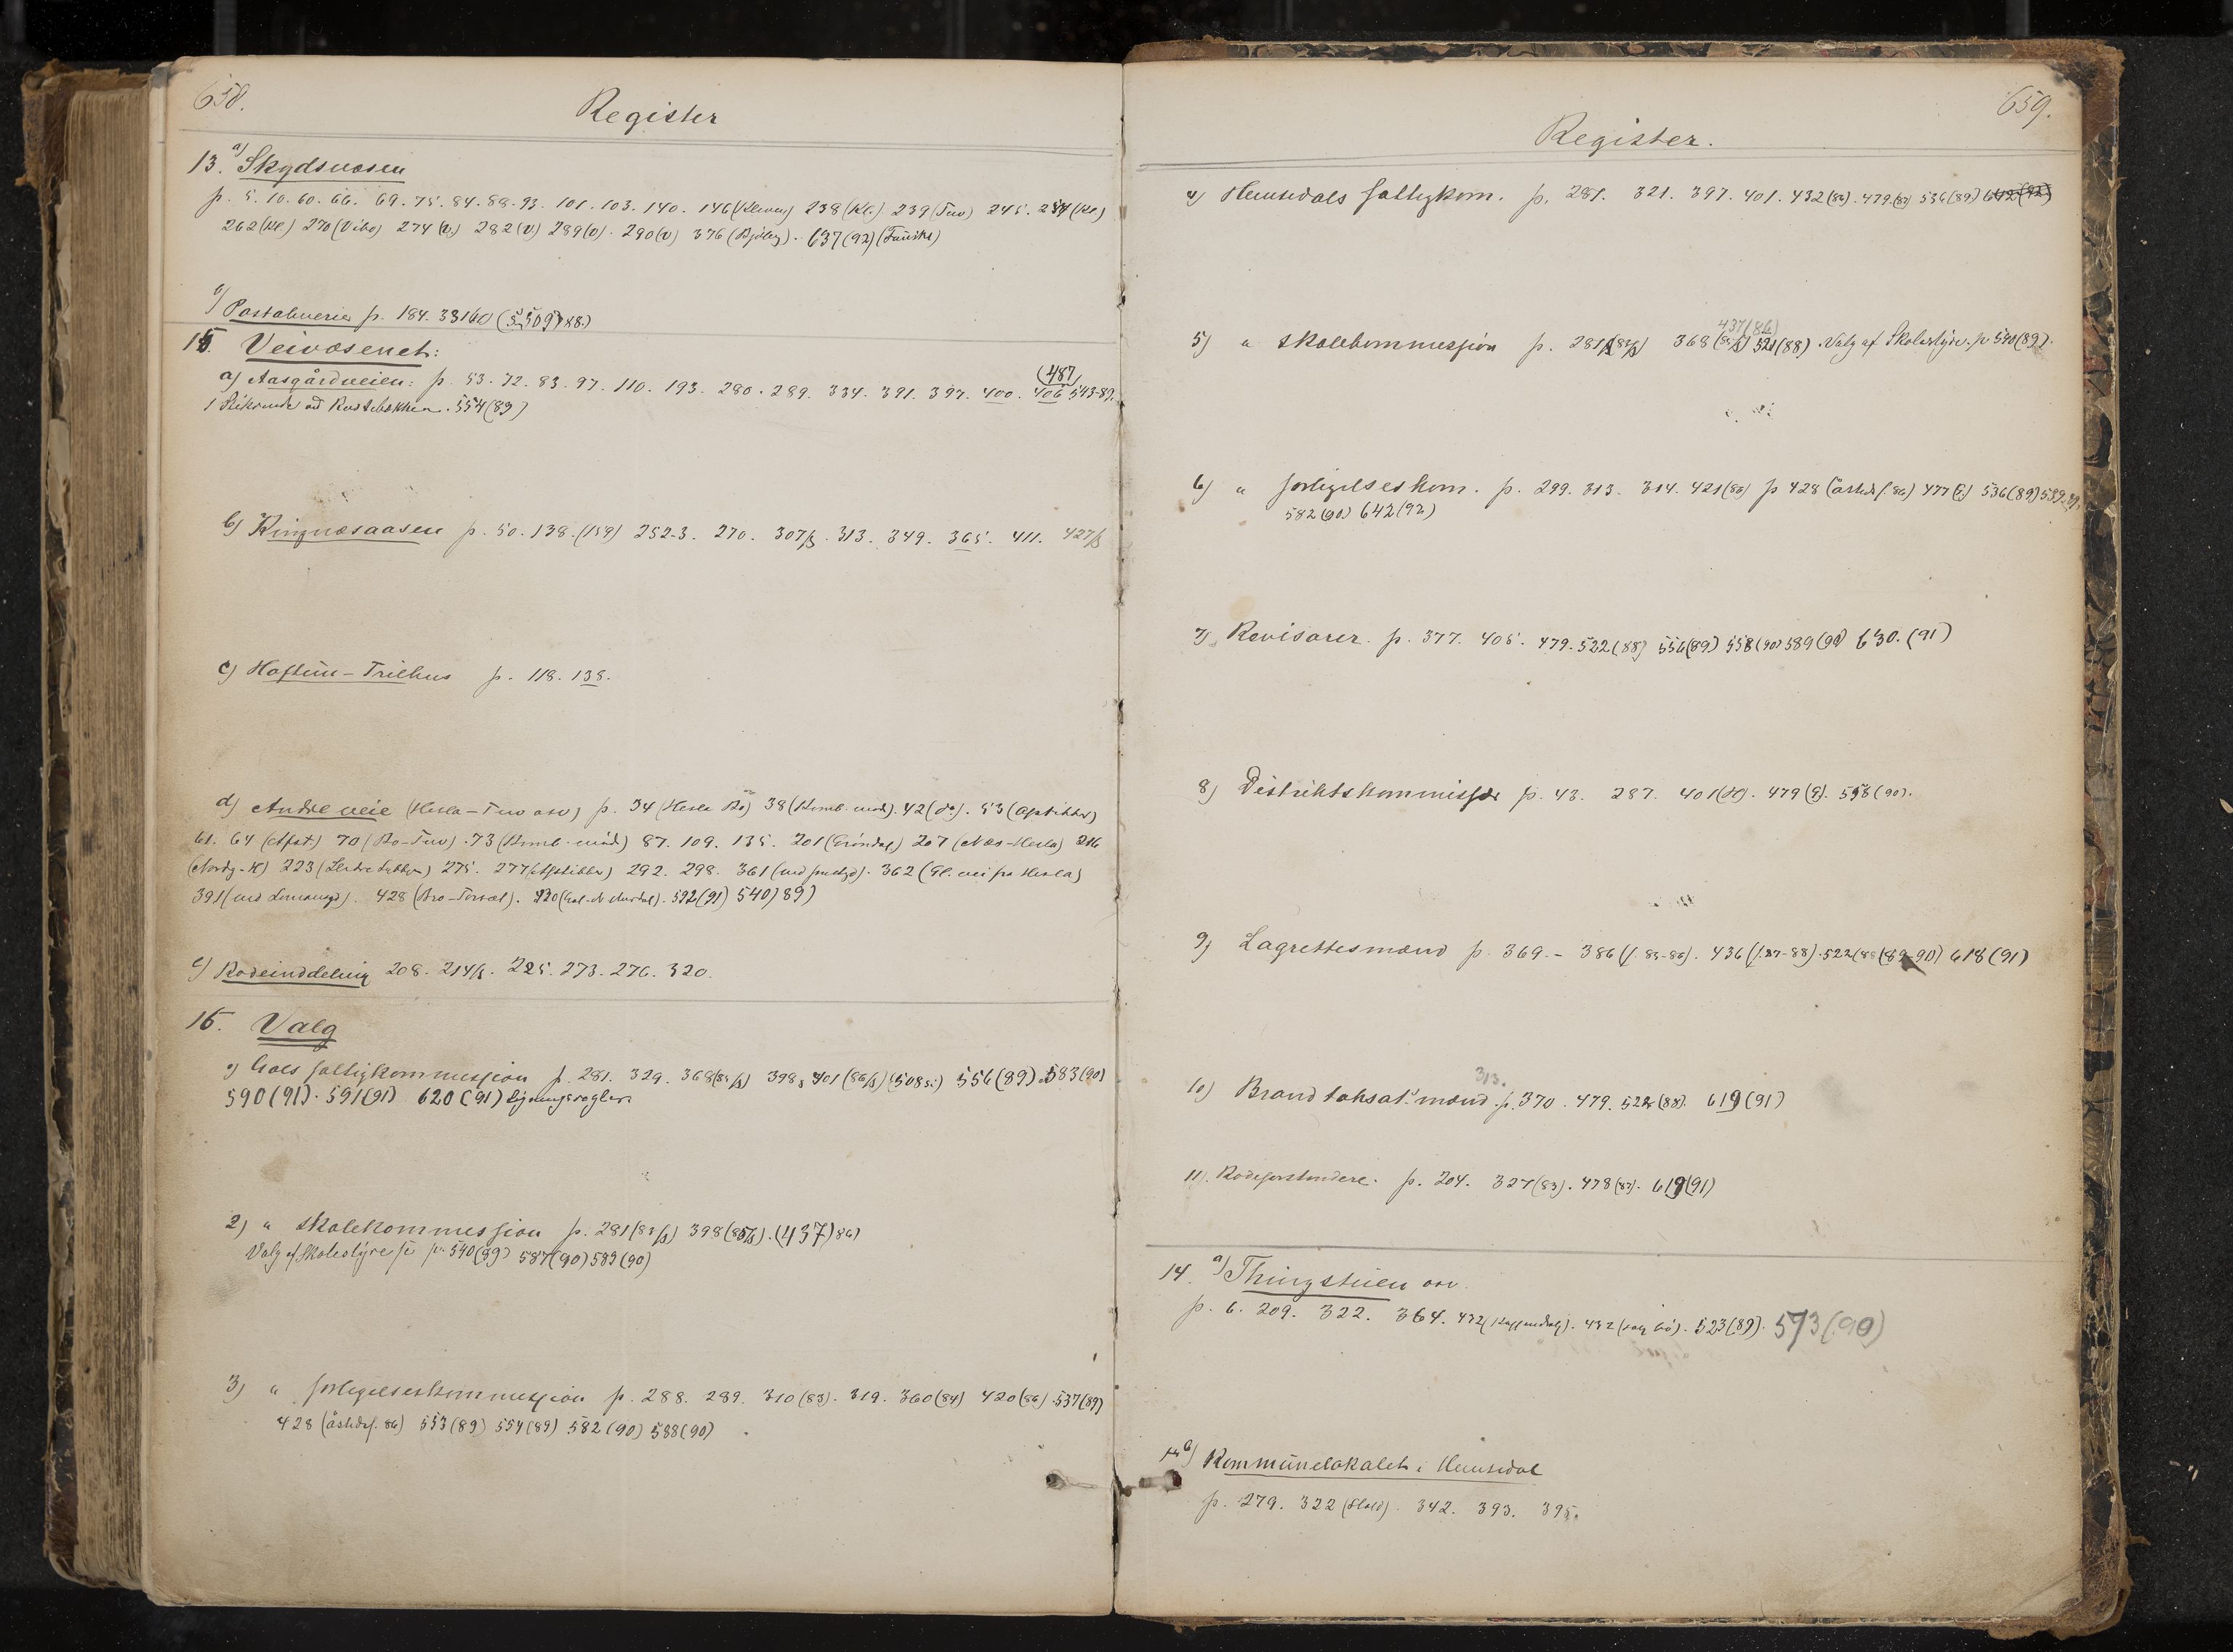 658.
Register
13. a) Skydsvæsen
p. 5. 10. 60. 66. 69. 75. 84. 88. 93. 101. 103. 140. 146 (Kleven) 238 (Kl.) 239 (Tuv) 245. 254 (Kl)
262 (Kl) 270 (Vibo) 274 (V.) 282 (V) 289 (V). 290 (V) 376 (Bjöberg). 637 (92)
b) Postaabnerier p. 184. (509) 88.)
15. Veivæsenet:
(487)
a) Aasgårdveien: p. 53. 72. 83. 97. 110. 193. 280. 289. 334. 391. 397. 400. 406 543-89.
554 (89)
b) Ringnæsaasen p. 50. 138. (159) 252-3. 270. 307/8. 313. 349. 365. 411. 427/8
c) Haftun - Trillhus p. 118. 138.
d) Andre veie (Hesla - Tuv osv) p. 34 (Hesla Ro) 38 (Komb. ind). 42 (do). 53 (Opstikker)
61. 64 (Opst.) 70 (Ro - Tuv). 73 (Komb. ind) 87. 109. 135. 201 (Gröndal) 207 (Næs - Hesla) 216
223 275. 277 (Opstikker) 292. 298. 361 362 (Gl. vei fra Hesla)
391 428 (Bro - Torset). 592 (91) 540) 89)
e) Rodeinddeling 208. 214/5. 225. 273. 276. 320.
16. Valg
1) Gols fattigkommission p. 281. 329. 368 398 401 (86/8) (508 556 (89). 583 (90)
590 (91). 591 (91) 620 (91) Ligningsregler
2) " Skolekommission p. 281 398 (437) 86)
Valg af Skolestyre p. 540 (89) 587 (90) 589 (90)
3) " forligelseskommission p. 288. 289. 310 (83). 319. 360 (84) 420 (86). 537 (89)
428 553 (89) 554 (89) 582 (90) 588 (90)
659.
Register.
4) Hemsedals fattigkom. p. 281. 321. 397. 401. 432 (86). 479. (87) 536 (89) 642 (92)
437 (86)
5) " Skolekommission p. 281 368 521 (88). Valg af Skolestyre. p 540 (89).
6) " forligelseskom. p. 299. 313. 314. 421 (86) p 428 477 536 (89) 539. 89.
582 (90) 642 (92)
7) Revisorer. p. 377. 405. 479. 522 (88) 556 (89) 558 (90) 589 (90) 630. (91)
8) Distriktskommissær p. 43. 287. 401 479 558 (90).
9) Lagrettesmænd p. 369. - 386 (f. 85-86). 436 (f. 87-88). 522 (89-90) 618 (91)
313.
10) Brandtaksat. mænd. p. 370. 479. 522 (88). 619 (91)
11). Rodeforstandere. p. 204. 327 (83). 478 (87). 619 (91)
14. a) Thingstuen osv.
p. 6. 209. 322. 364. 432 432 523 (89). 573 (90)
14 b) Kommunelokalet i Hemsedal
p. 279. 322 (Stald). 342. 393. 395.